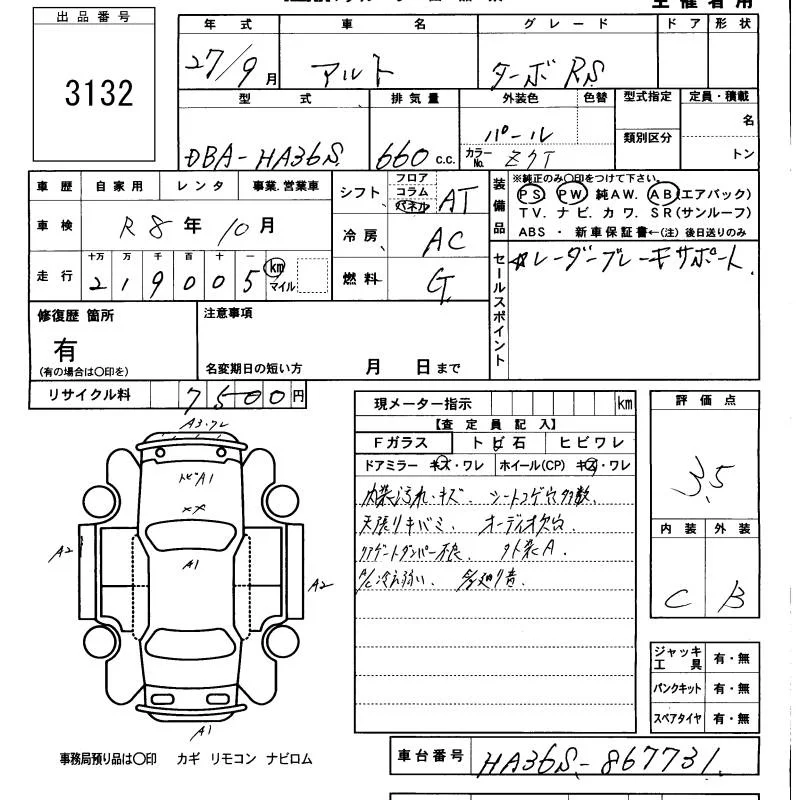 出品番号
3132
年式 車名 グレード ドア 形状
27/9月 アルト ターボRS
型式 排気量 外装色 色替 型式指定 定員・積載
類別区分
DBA-HA36S 660c.c. パール カラーNo. Z7T 名 トン
車歴 自家用 レンタ 事業.営業車
車検 R8年10月
走行 十万 万 千 百 十 一
219005 km マイル
シフト フロア コラム パネル AT
冷房 AC
燃料 G
装備品
※純正のみ○印をつけて下さい。
PS PW 純AW. AB(エアバック)
TV. ナビ. カワ. SR(サンルーフ)
ABS ・ 新車保証書←(注)後日送りのみ
セールスポイント
☆レーダーブレーキサポート
修復歴 箇所
有
(有の場合は○印を)
注意事項
名変期日の短い方 月 日まで
リサイクル料 7500円
現メーター指示 km
【査定員記入】
Fガラス トビ石 ヒビワレ
ドアミラー キズ・ワレ ホイール(CP) キズ・ワレ
内装汚れ・キズ. シートコゲ穴多数.
天張りキバミ. オーディオ欠品
リアゲートダンパー不良. 外装A.
A/C冷え弱い.
評価点
3.5
内装 外装
C B
ジャッキ工具 有・無
パンクキット 有・無
スペアタイヤ 有・無
A3・ワレ
トビA1
A1
A2
A2
A1
事務局預り品は○印 カギ リモコン ナビロム
車台番号 HA36S-867731